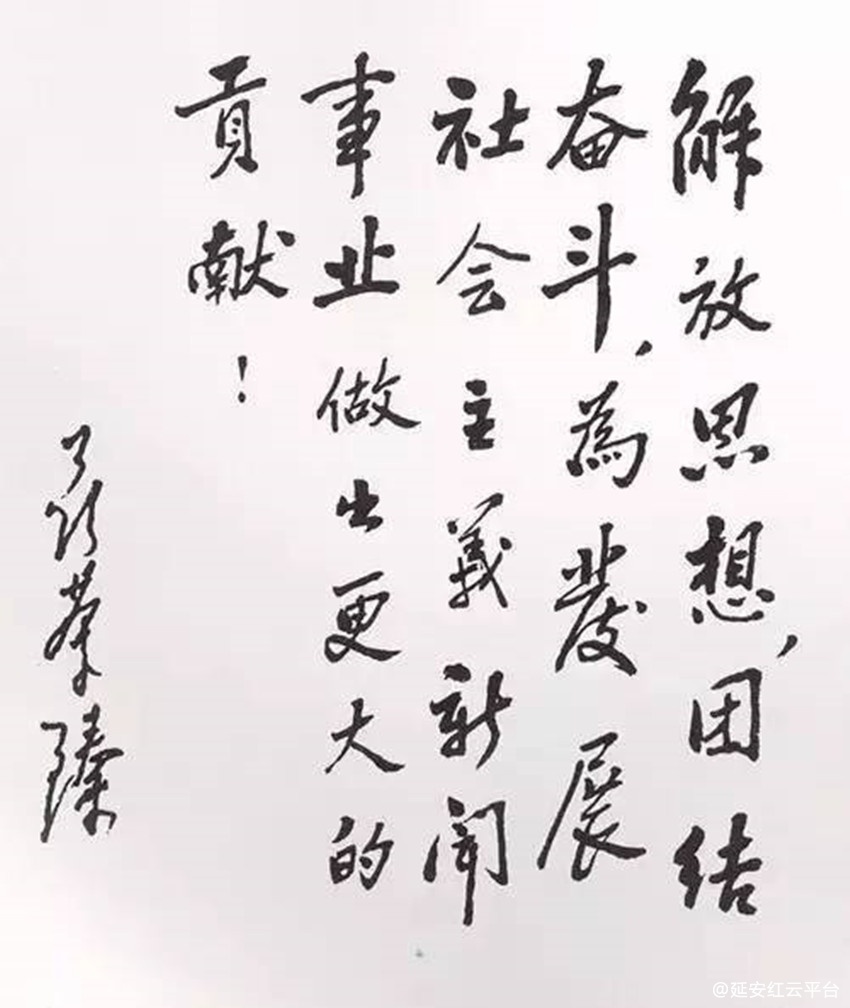 解放思想，团结
奋斗，為發展
社会主義新闻
事业做出更大的
貢献！
聂荣臻
@延安红云平台